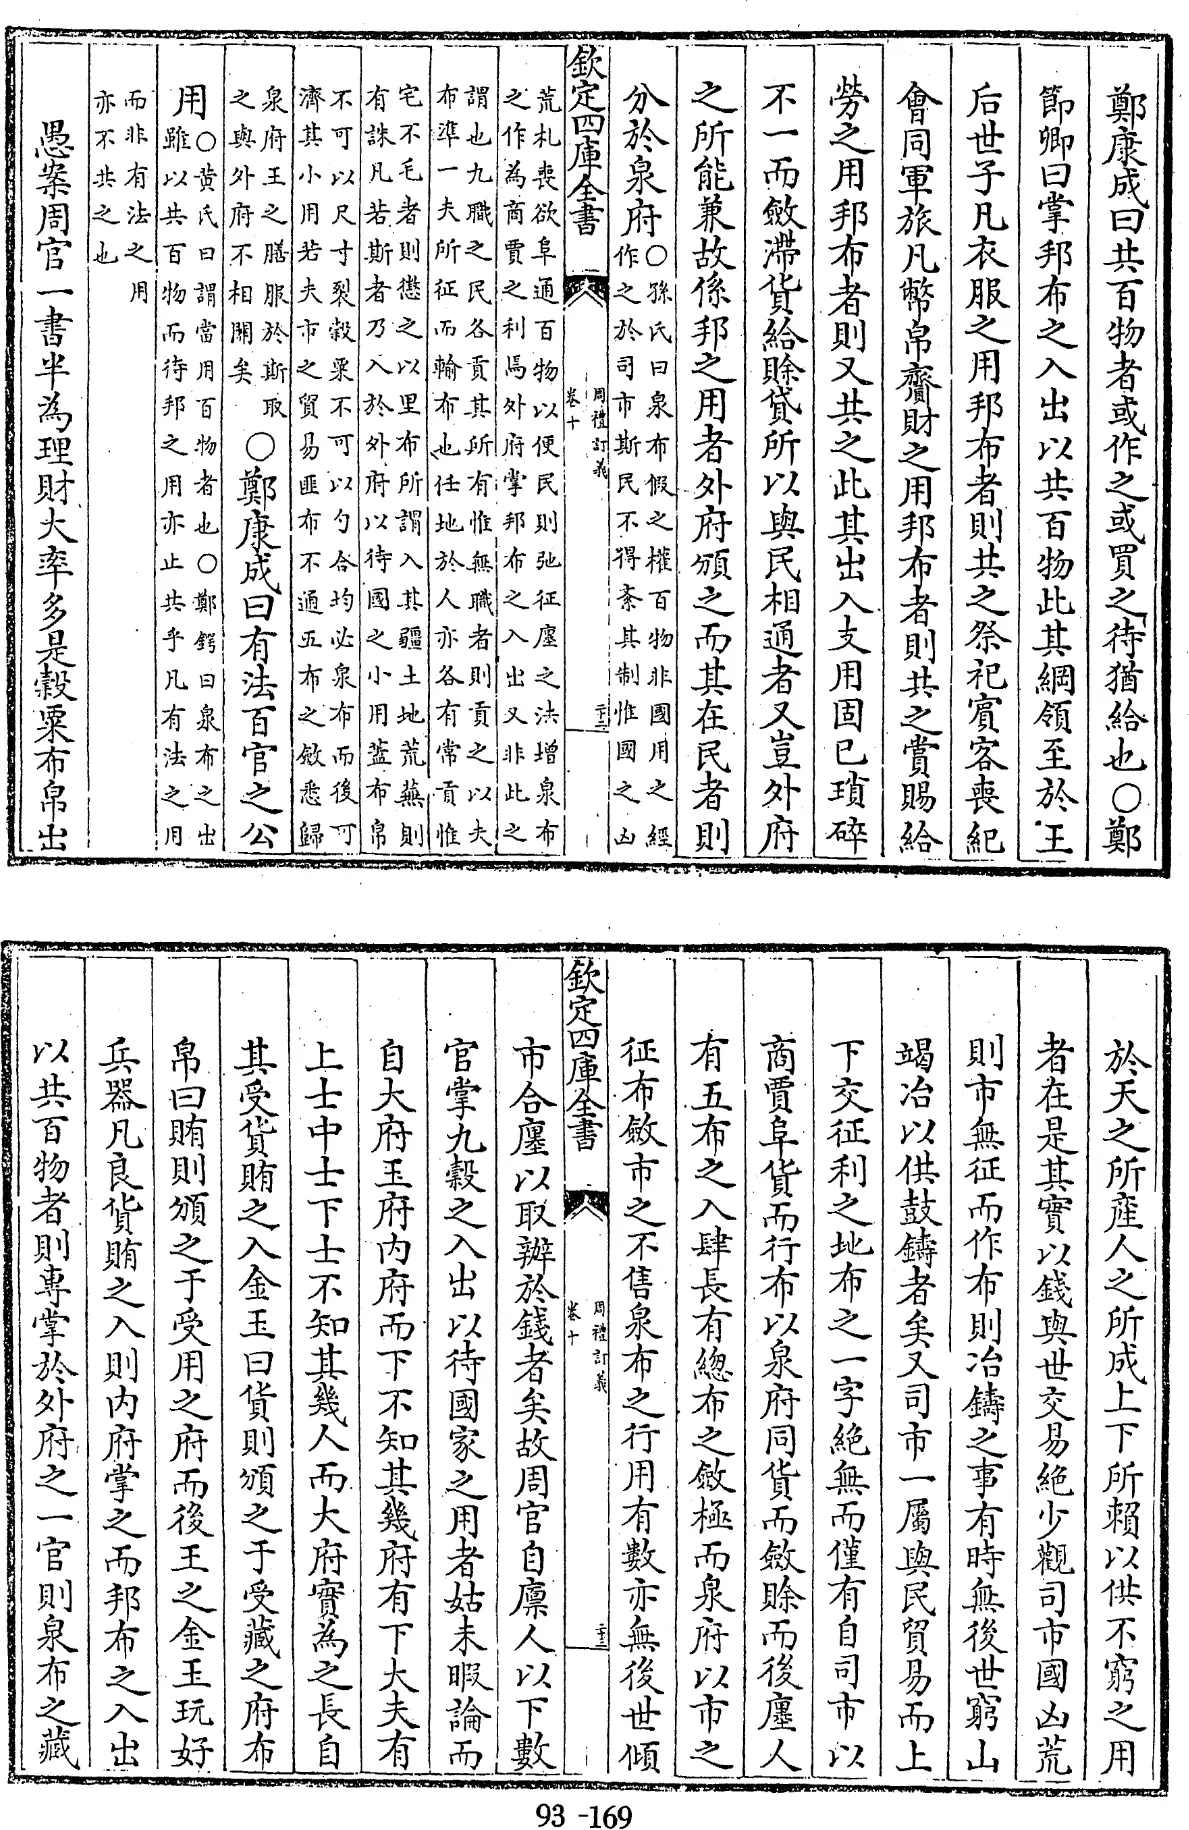 鄭康成曰共百物者或作之或買之待猶給也○鄭
節卿曰掌邦布之入出以共百物此其綱領至於王
后世子凡衣服之用邦布者則共之祭祀賔客喪紀
會同軍旅凡幣帛齎財之用邦布者則共之賞賜給
勞之用邦布者則又共之此其出入支用固已瑣碎
不一而斂滯貨給賖貸所以與民相通者又豈外府
之所能兼故係邦之用者外府頒之而其在民者則
分於泉府○孫氏曰泉布假之權百物非國用之經
作之於司市斯民不得紊其制惟國之凶
欽定四庫全書
周禮訂義
卷十
二十二
荒札喪欲阜通百物以便民則弛征廛之法增泉布
之作為商賈之利焉外府掌邦布之入出又非此之
謂也九職之民各貢其所有惟無職者則貢之以夫
布準一夫所征而輸布也任地於人亦各有常貢惟
宅不毛者則懲之以里布所謂入其疆土地荒蕪則
有誅凡若斯者乃入於外府以待國之小用葢布帛
不可以尺寸裂穀粟不可以勺合均必泉布而後可
濟其小用若夫市之貿易匪布不通五布之斂悉歸
泉府王之膳服於斯取
之與外府不相關矣
○鄭康成曰有法百官之公
用○黄氏曰謂當用百物者也○鄭鍔曰泉布之出
雖以共百物而待邦之用亦止共乎凡有法之用
而非有法之用
亦不共之也
愚案周官一書半為理財大率多是穀粟布帛出
於天之所產人之所成上下所賴以供不窮之用
者在是其實以錢與世交易絶少觀司市國凶荒
則市無征而作布則冶鑄之事有時無後世窮山
竭冶以供鼓鑄者矣又司市一屬與民貿易而上
下交征利之地布之一字絶無而僅有自司市以
商賈阜貨而行布以泉府同貨而斂賖而後廛人
有五布之入肆長有總布之斂極而泉府以市之
征布斂市之不售泉布之行用有數亦無後世傾
欽定四庫全書
周禮訂義
卷十
二十三
市合廛以取辦於錢者矣故周官自廩人以下數
官掌九榖之入出以待國家之用者姑未暇論而
自大府玉府内府而下不知其幾府有下大夫有
上士中士下士不知其幾人而大府實為之長自
其受貨賄之入金玉曰貨則頒之于受藏之府布
帛曰賄則頒之于受用之府而後王之金玉玩好
兵器凡良貨賄之入則内府掌之而邦布之入出
以共百物者則專掌於外府之一官則泉布之藏
93-169